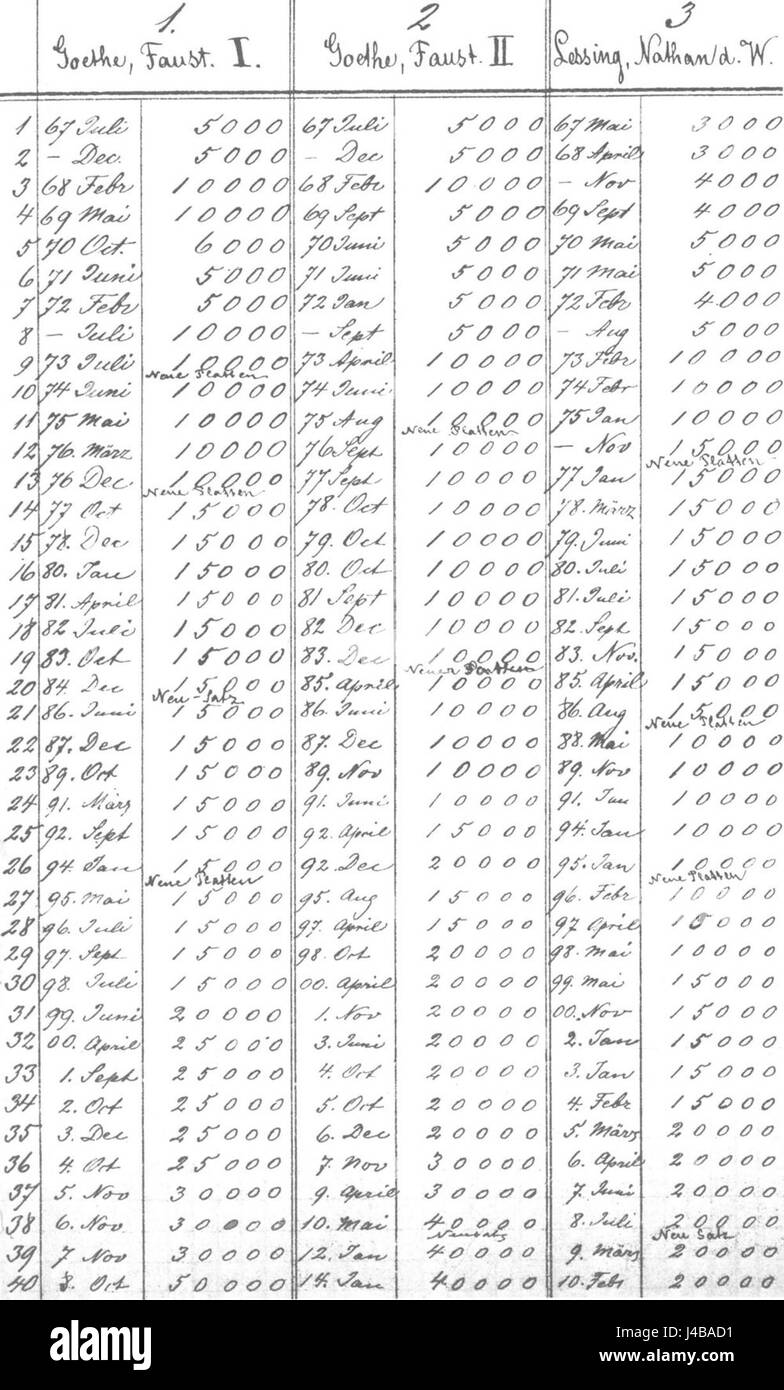 1. 2 3
Goethe, Faust. I. Goethe, Faust. II Lessing, Nathan d. W.
1 67 Juli 5000 67 Juli 5000 67 Mai 3000
2 – Dec. 5000 – Dec 5000 68 April 3000
3 68 Febr 10000 68 Febr 10000 – Nov 4000
4 69 Mai 10000 69 Sept 5000 69 Sept 4000
5 70 Oct. 6000 70 Juni 5000 70 Mai 5000
6 71 Juni 5000 71 Juni 5000 71 Mai 5000
7 72 Febr 5000 72 Jan 5000 72 Febr 4000
8 – Juli 10000 – Sept 5000 – Aug 5000
9 73 Juli 10000 73 April 10000 73 Febr 10000
Neue Platten
10 74 Juni 10000 74 Juni 10000 74 Febr 10000
11 75 Mai 10000 75 Aug 10000 75 Jan 10000
Neue Platten
12 76. März 10000 76 Sept 10000 – Nov 15000
Neue Platten
13 76 Dec 10000 77 Sept 10000 77 Jan 15000
Neue Platten
14 77 Oct 15000 78. Oct 10000 78. März 15000
15 78. Dec 15000 79. Oct 10000 79. Juni 15000
16 80. Jan 15000 80. Oct 10000 80. Juli 15000
17 81. April 15000 81 Sept 10000 81. Juli 15000
18 82 Juli 15000 82 Dec 10000 82. Sept 15000
19 83. Oct 15000 83. Dec 10000 83. Nov. 15000
Neue Platten
20 84. Dec 15000 85. April 10000 85. April 15000
Neu-Satz
21 86. Juni 15000 86. Juni 10000 86. Aug 15000
Neue Platten
22 87. Dec 15000 87. Dec 10000 88. Mai 10000
23 89. Oct 15000 89. Nov 10000 89. Nov 10000
24 91. März 15000 91. Juni 10000 91. Jan 10000
25 92. Sept 15000 92. April 15000 94. Jan 10000
26 94. Jan 15000 92. Dec 20000 95. Jan 10000
Neue Platten Neue Platten
27 95. Mai 15000 95. Aug 15000 96. Febr 10000
28 96. Juli 15000 97. April 15000 97 April 10000
29 97. Sept 15000 98. Oct 20000 98. Mai 10000
30 98. Juli 15000 00. April 20000 99. Mai 15000
31 99. Juni 20000 1. Nov 20000 00. Nov 15000
32 00. April 25000 3. Juni 20000 2. Jan 15000
33 1. Sept 25000 4. Oct 20000 3. Jan 15000
34 2. Oct 25000 5. Oct 20000 4. Febr 15000
35 3. Dec 25000 6. Dec 20000 5. März 20000
36 4. Oct 25000 7. Nov 30000 6. April 20000
37 5. Nov 30000 9. April 30000 7. Juni 20000
38 6. Nov 30000 10. Mai 40000 8. Juli 20000
Neusatz Neu Satz
39 7 Nov 30000 12. Jan 40000 9. März 20000
40 8. Oct 50000 14. Jan 40000 10. Febr 20000
alamy
Image ID: J4BAD1
www.alamy.com